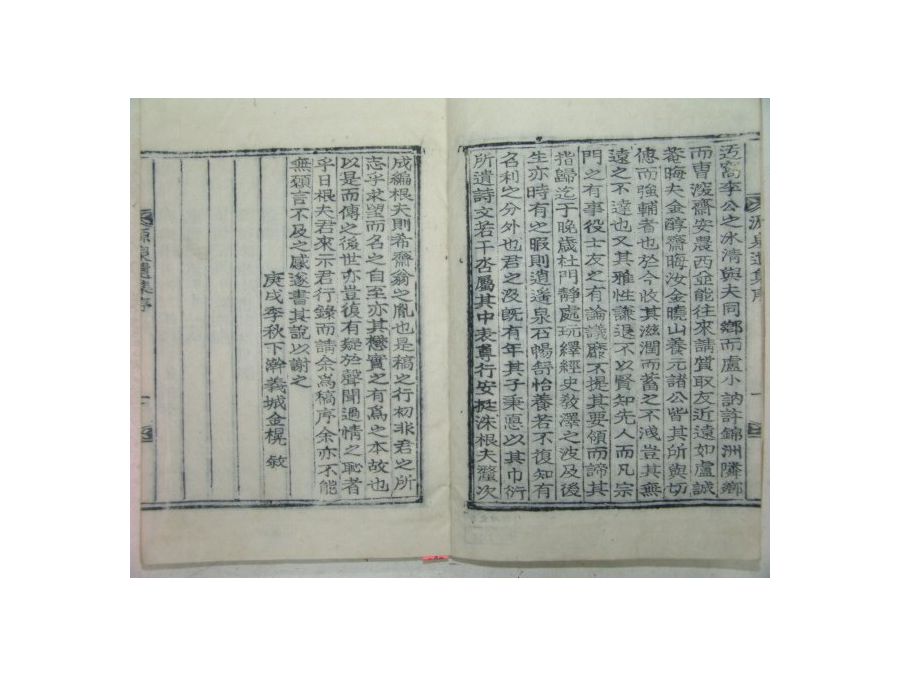 迃窩李公之氷清與夫同鄉而盧小訥許錦洲隣鄉
而曺深齋安農西並能往來請質取友近遠如盧誠
菴晦夫金醇齋晦汝金瞻山養元諸公皆其所與切
偲而強輔者也於今收其滋潤而蓄之不洩豈其無
遠之不達也又其雅性謙退不以賢知先人而凡宗
門之有事役士友之有論議靡不提其要領而諦其
指歸迄于晚歲杜門靜處玩繹經史敎澤之波及後
生亦時有之暇則逍遙泉石暢舒怡養若不復知有
名利之分外也君之沒旣有年其子秉悳以其巾衍
所遺詩文若干沓屬其中表尊行安挺洙根夫釐次
成編根夫則希齋翁之胤也是稿之行初非君之所
志乎求望而名之自至亦其懋實之有爲之本故也
以是而傳之後世亦豈復有疑於聲聞過情之恥者
乎日根夫君來示君行錄而請余爲稿序余亦不能
無類言不及之感遂書其說以謝之
庚戌季秋下澣義城金榥敘
源泉遺集序